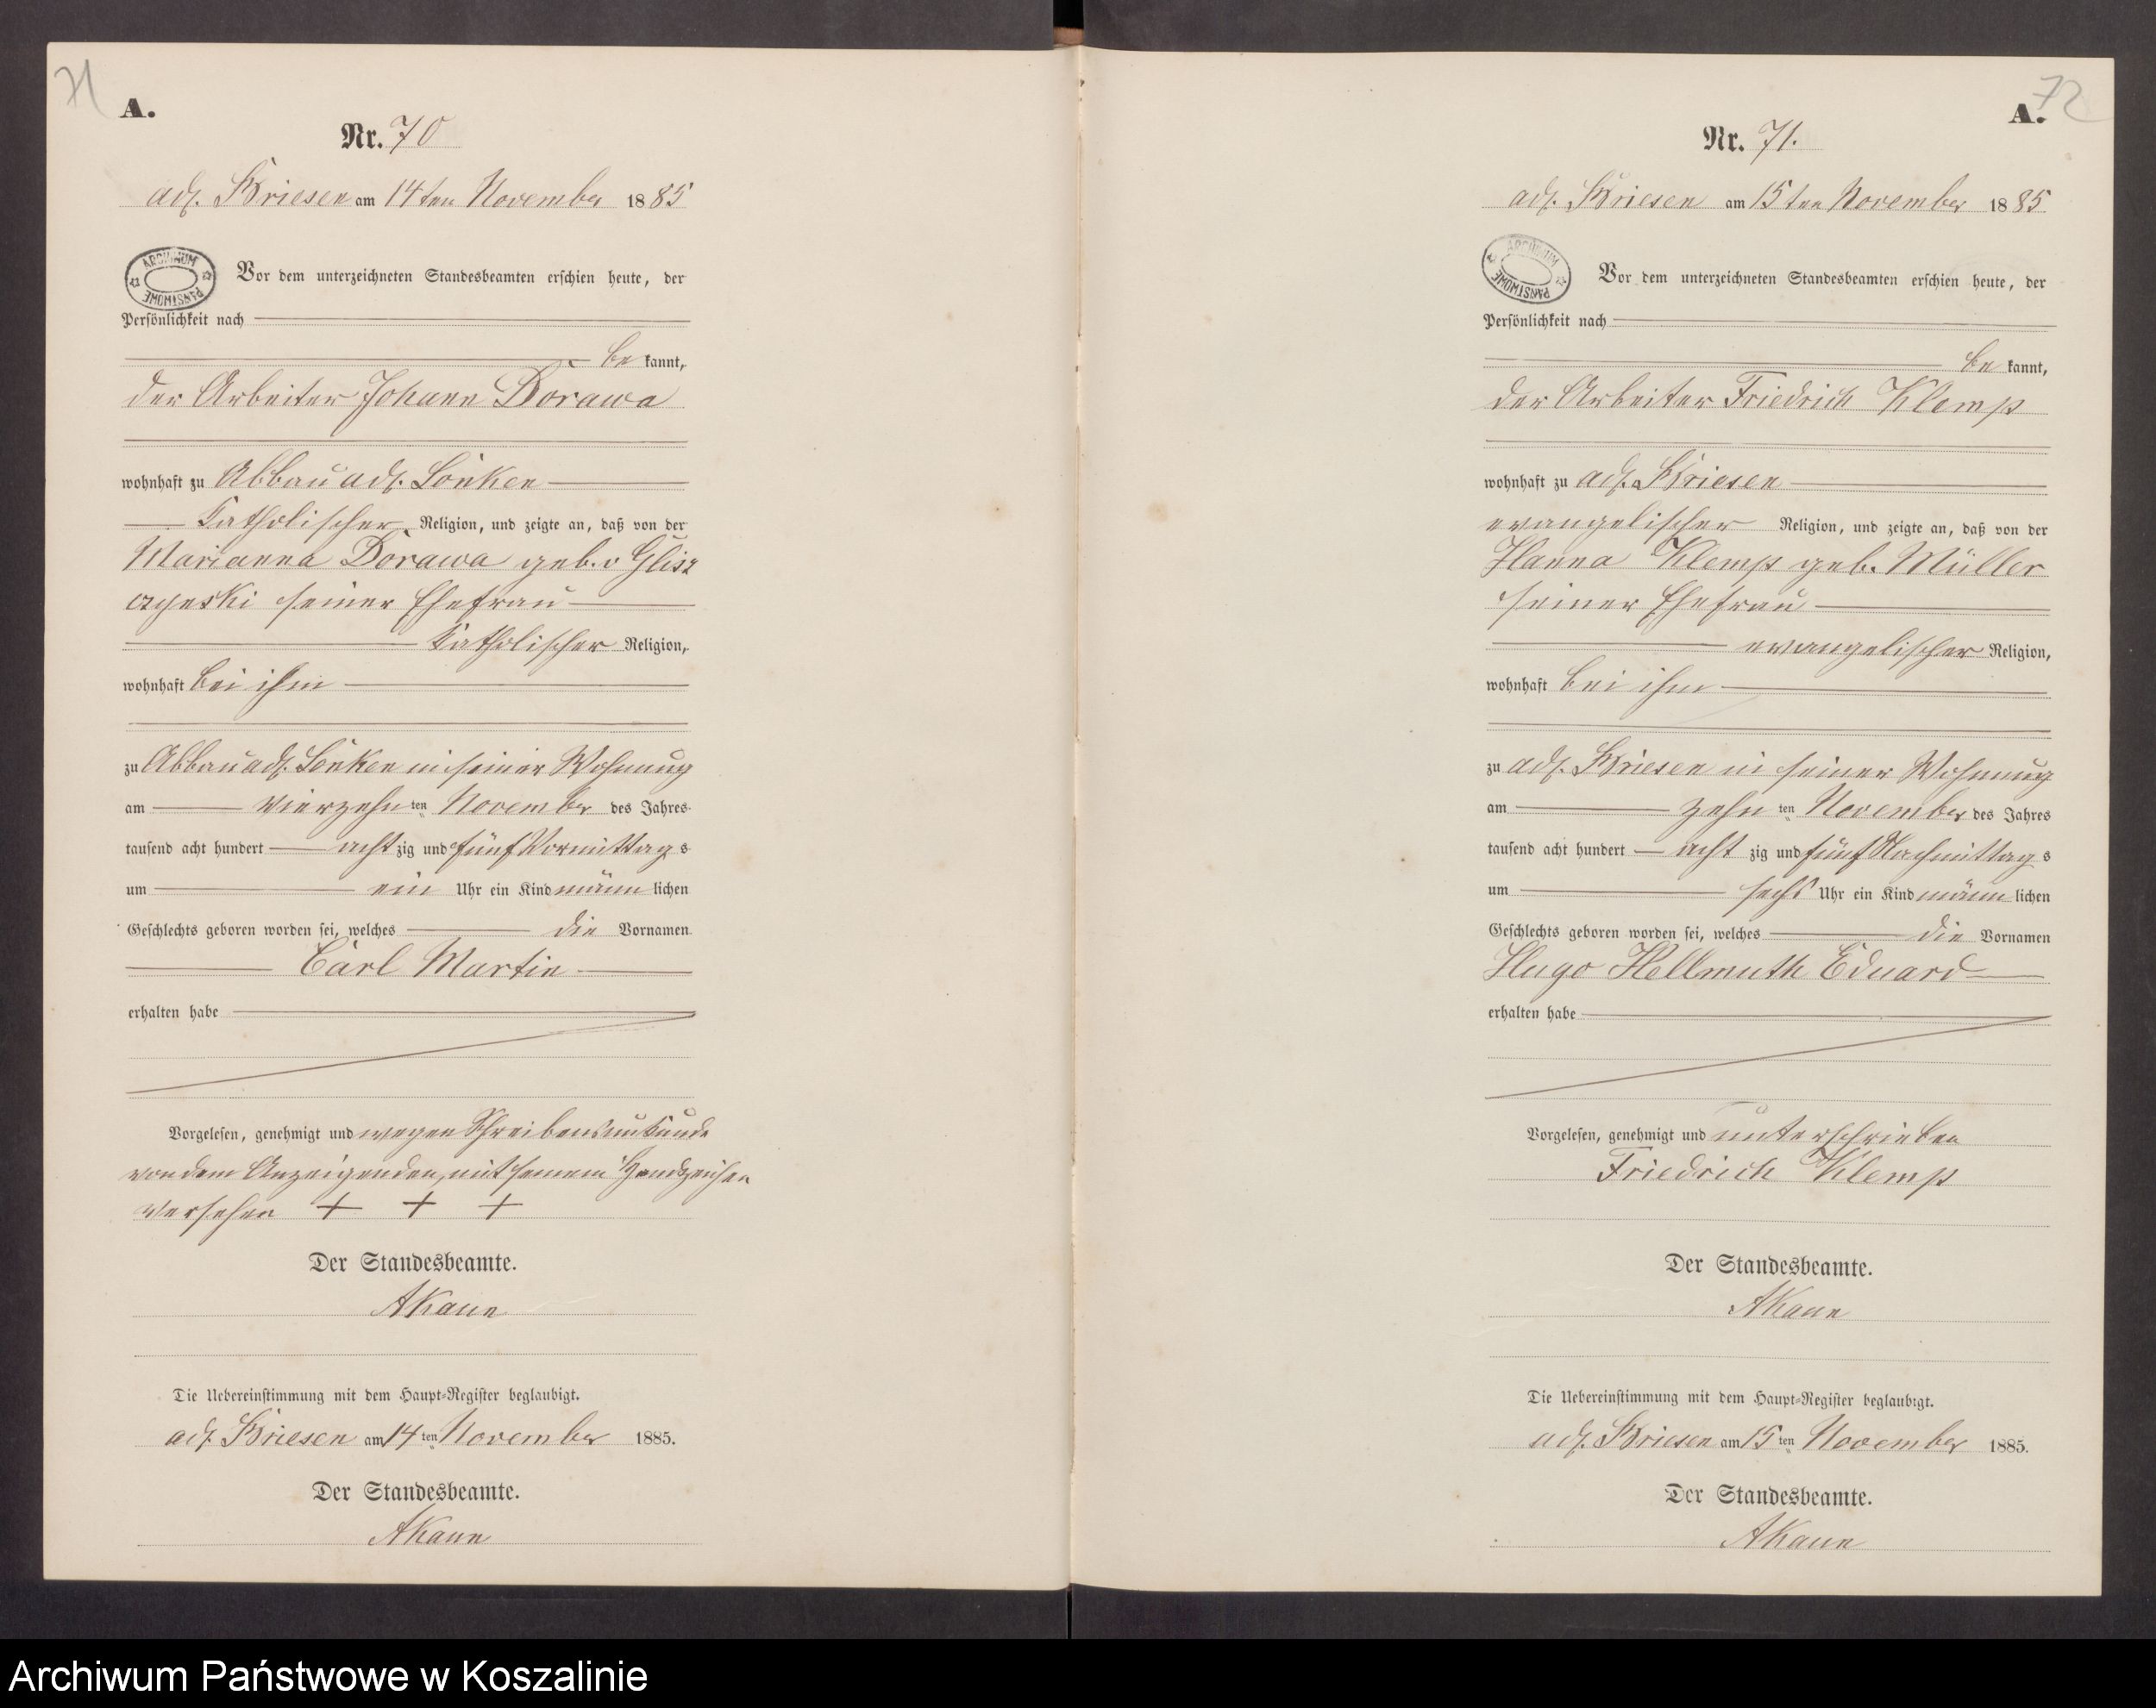 71
A.
Nr. 70
adl. Briesen am 14ten November 1885
ARCHIWUM PAŃSTWOWE
Vor dem unterzeichneten Standesbeamten erschien heute, der
Persönlichkeit nach
be kannt,
der Arbeiter Johann Dorawa
wohnhaft zu Abbau adl. Lonken
Katholischer Religion, und zeigte an, daß von der
Marianna Dorawa geb. v Glisz
czynski seiner Ehefrau
Katholischer Religion,
wohnhaft bei ihm
zu Abbau adl. Lonken in seiner Wohnung
am vierzehn ten November des Jahres
tausend acht hundert acht zig und fünf Vormittag s
um ein Uhr ein Kind männ lichen
Geschlechts geboren worden sei, welches die Vornamen
Carl Martin
erhalten habe
Vorgelesen, genehmigt und wegen Schreibensunkunde
von dem Anzeigenden, mit seinem Handzeichen
versehen + + +
Der Standesbeamte.
AKaun
Die Uebereinstimmung mit dem Haupt-Register beglaubigt.
adl. Briesen am 14 ten November 1885.
Der Standesbeamte.
AKaun
72
A.
Nr. 71.
adl. Briesen am 15ten November 1885
ARCHIWUM PAŃSTWOWE
Vor dem unterzeichneten Standesbeamten erschien heute, der
Persönlichkeit nach
be kannt,
der Arbeiter Friedrich Klemp
wohnhaft zu adl. Briesen
evangelischer Religion, und zeigte an, daß von der
Hanna Klemp geb. Müller
seiner Ehefrau
evangelischer Religion,
wohnhaft bei ihm
zu adl. Briesen in seiner Wohnung
am zehn ten November des Jahres
tausend acht hundert acht zig und fünf Nachmittag s
um sechs Uhr ein Kind männ lichen
Geschlechts geboren worden sei, welches die Vornamen
Hugo Hellmuth Eduard
erhalten habe
Vorgelesen, genehmigt und unterschrieben
Friedrich Klemp
Der Standesbeamte.
AKaun
Die Uebereinstimmung mit dem Haupt-Register beglaubigt.
adl. Briesen am 15 ten November 1885.
Der Standesbeamte.
AKaun
Archiwum Państwowe w Koszalinie